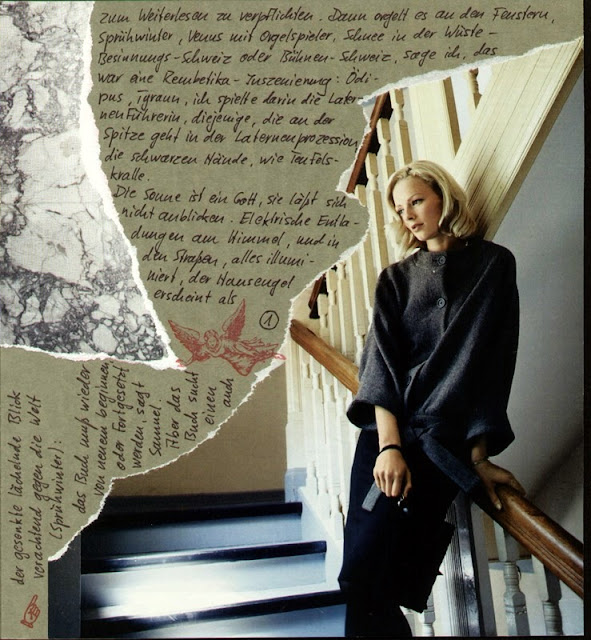 zum Weiterlesen zu verpflichten. Dann orgelt es an den Fenstern,
Sprühwinter, Venus mit Orgelspieler, Schnee in der Wüste -
Besinnungs-Schweiz oder Bühnen-Schweiz, sage ich, das
war eine Rembetika-Inszenierung: Ödi-
pus, Tyrann, ich spielte darin die Later-
nenführerin, diejenige, die an der
Spitze geht in der Laternenprozession
die schwarzen Hände, wie Teufels-
kralle.
Die Sonne ist ein Gott, sie läßt sich
nicht anblicken. Elektrische Entla-
dungen am Himmel, und in
den Straßen, alles illumi-
niert, der Hausengel
erscheint als
1
der gesenkte lächelnde Blick
verachtend gegen die Welt
(Sprühwinter):
das Buch muß wieder
von neuem beginnen
oder fortgesetzt
werden, sagt
Samuel.
Aber das
Buch sucht
einen
auch